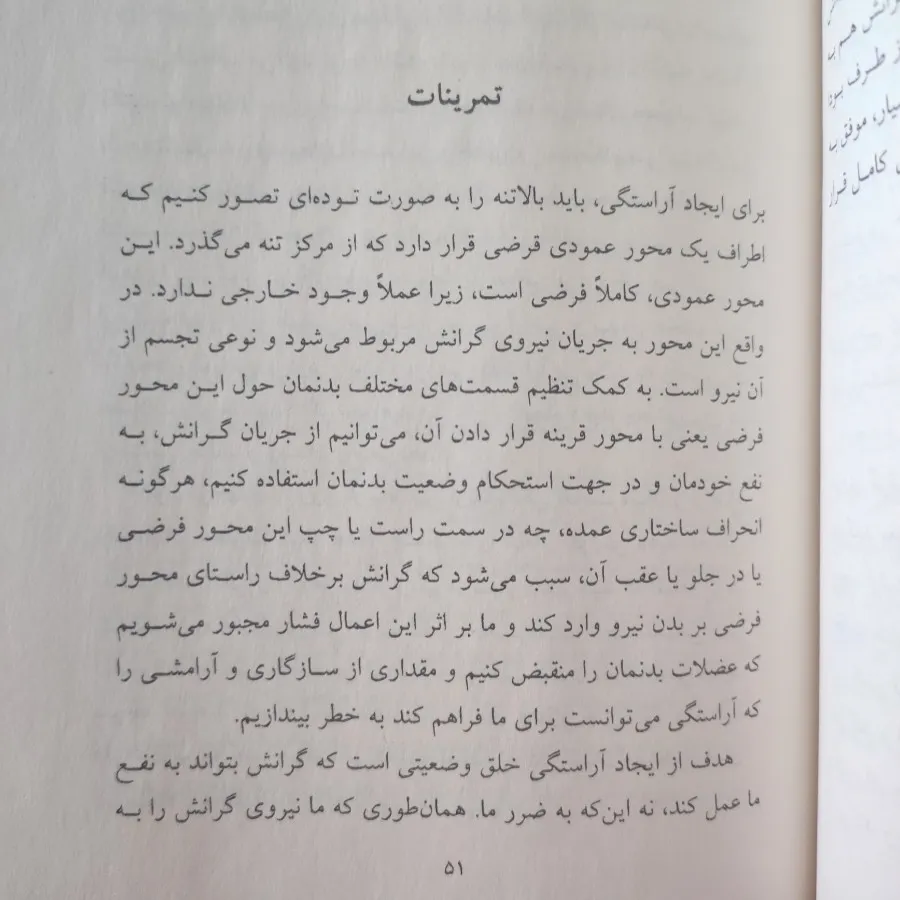 تمرینات
برای ایجاد آراستگی، باید بالاتنه را به صورت توده‌ای تصور کنیم که
اطراف یک محور عمودی فرضی قرار دارد که از مرکز تنه می‌گذرد. این
محور عمودی، کاملاً فرضی است، زیرا عملاً وجود خارجی ندارد. در
واقع این محور به جریان نیروی گرانش مربوط می‌شود و نوعی تجسم از
آن نیرو است. به کمک تنظیم قسمت‌های مختلف بدنمان حول این محور
فرضی یعنی با محور قرینه قرار دادن آن، می‌توانیم از جریان گرانش، به
نفع خودمان و در جهت استحکام وضعیت بدنمان استفاده کنیم، هرگونه
انحراف ساختاری عمده، چه در سمت راست یا چپ این محور فرضی
یا در جلو یا عقب آن، سبب می‌شود که گرانش برخلاف راستای محور
فرضی بر بدن نیرو وارد کند و ما بر اثر این اعمال فشار مجبور می‌شویم
که عضلات بدنمان را منقبض کنیم و مقداری از سازگاری و آرامشی را
که آراستگی می‌توانست برای ما فراهم کند به خطر بیندازیم.
هدف از ایجاد آراستگی خلق وضعیتی است که گرانش بتواند به نفع
ما عمل کند، نه این‌که به ضرر ما. همان‌طوری که ما نیروی گرانش را به
۵۱
هم ب
ز طرف
سیار، موفق ب
کامل قرار